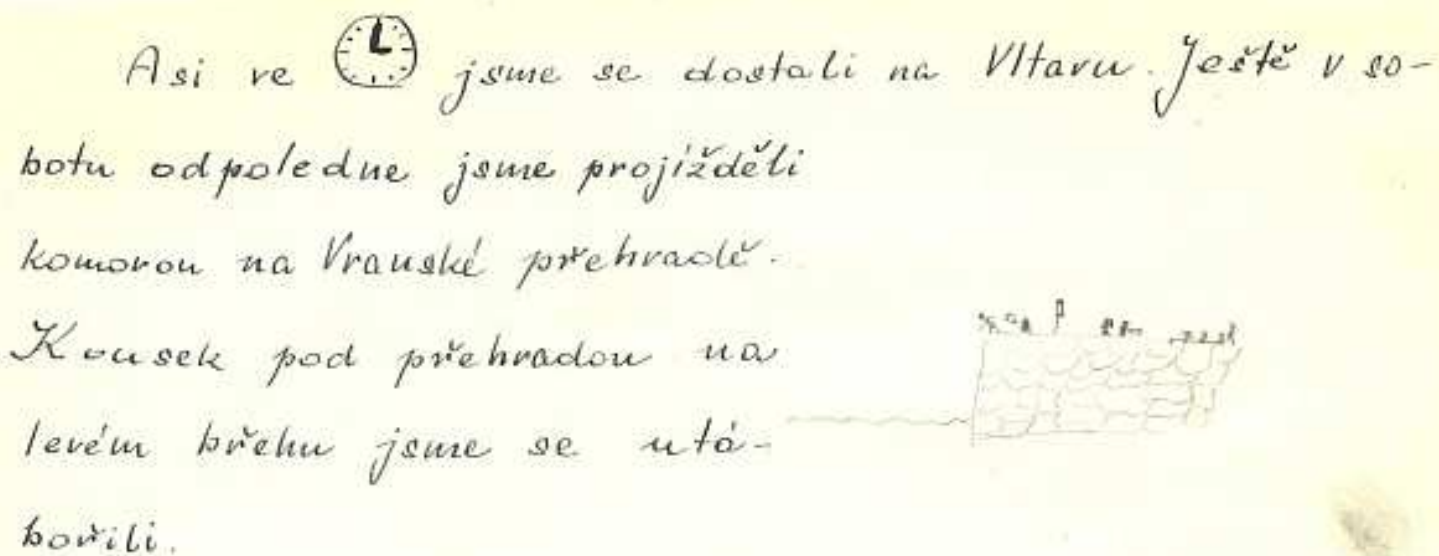 Asi ve jsme se dostali na Vltavu. Ještě v so-
botu odpoledne jsme projížděli
komorou na Vranské přehradě.
Kousek pod přehradou na
levém břehu jsme se utá-
bořili.